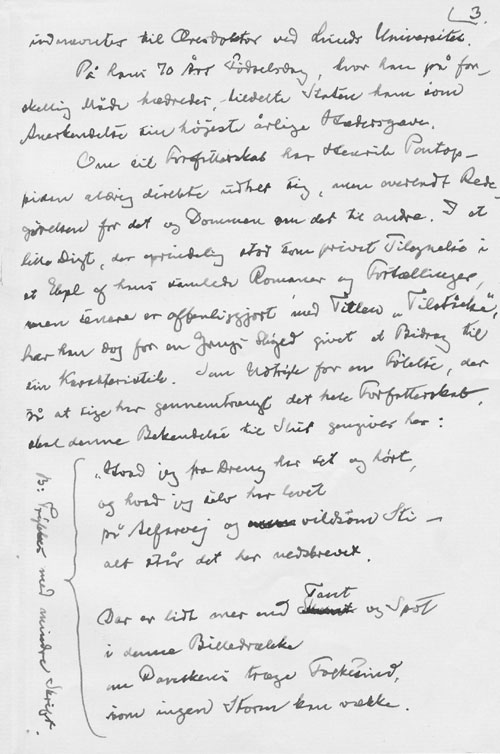 3.
indnævntes til Æresdoktor ved Lunds Universitet.
På hans 70 Års Fødselsdag, hvor han på for-
skellig Måde hædredes, tildelte Staten ham som
Anerkendelse sin højeste årlige Hædersgave.
Om sit Forfatterskab har Henrik Pontop-
pidan aldrig direkte udtalt sig, men overladt Rede-
gørelsen for det og Dommen om det til andre. I et
lille Digt, der oprindelig stod som privat Tilegnelse i
et Expl af hans samlede Romaner og Fortællinger,
men senere er offentliggjort med Titlen „Tilståelse",
har han dog for en Gangs Skyld givet et Bidrag til
sin Karakteristik. Som Udtryk for en Følelse, der
så at sige har gennemtrængt det hele Forfatterskab,
skal denne Bekendelse til Slut gengives her:
„Hvad jeg fra Dreng har set og hørt,
og hvad jeg selv har levet
på Alfarvej og vildsom Sti –
alt står det her nedskrevet.
Der er lidt mer end Tant og Spot
i denne Billedrække
om Danskens træge Folkesind,
som ingen Storm kan vække.
B: Trykkes med mindre Skrift.